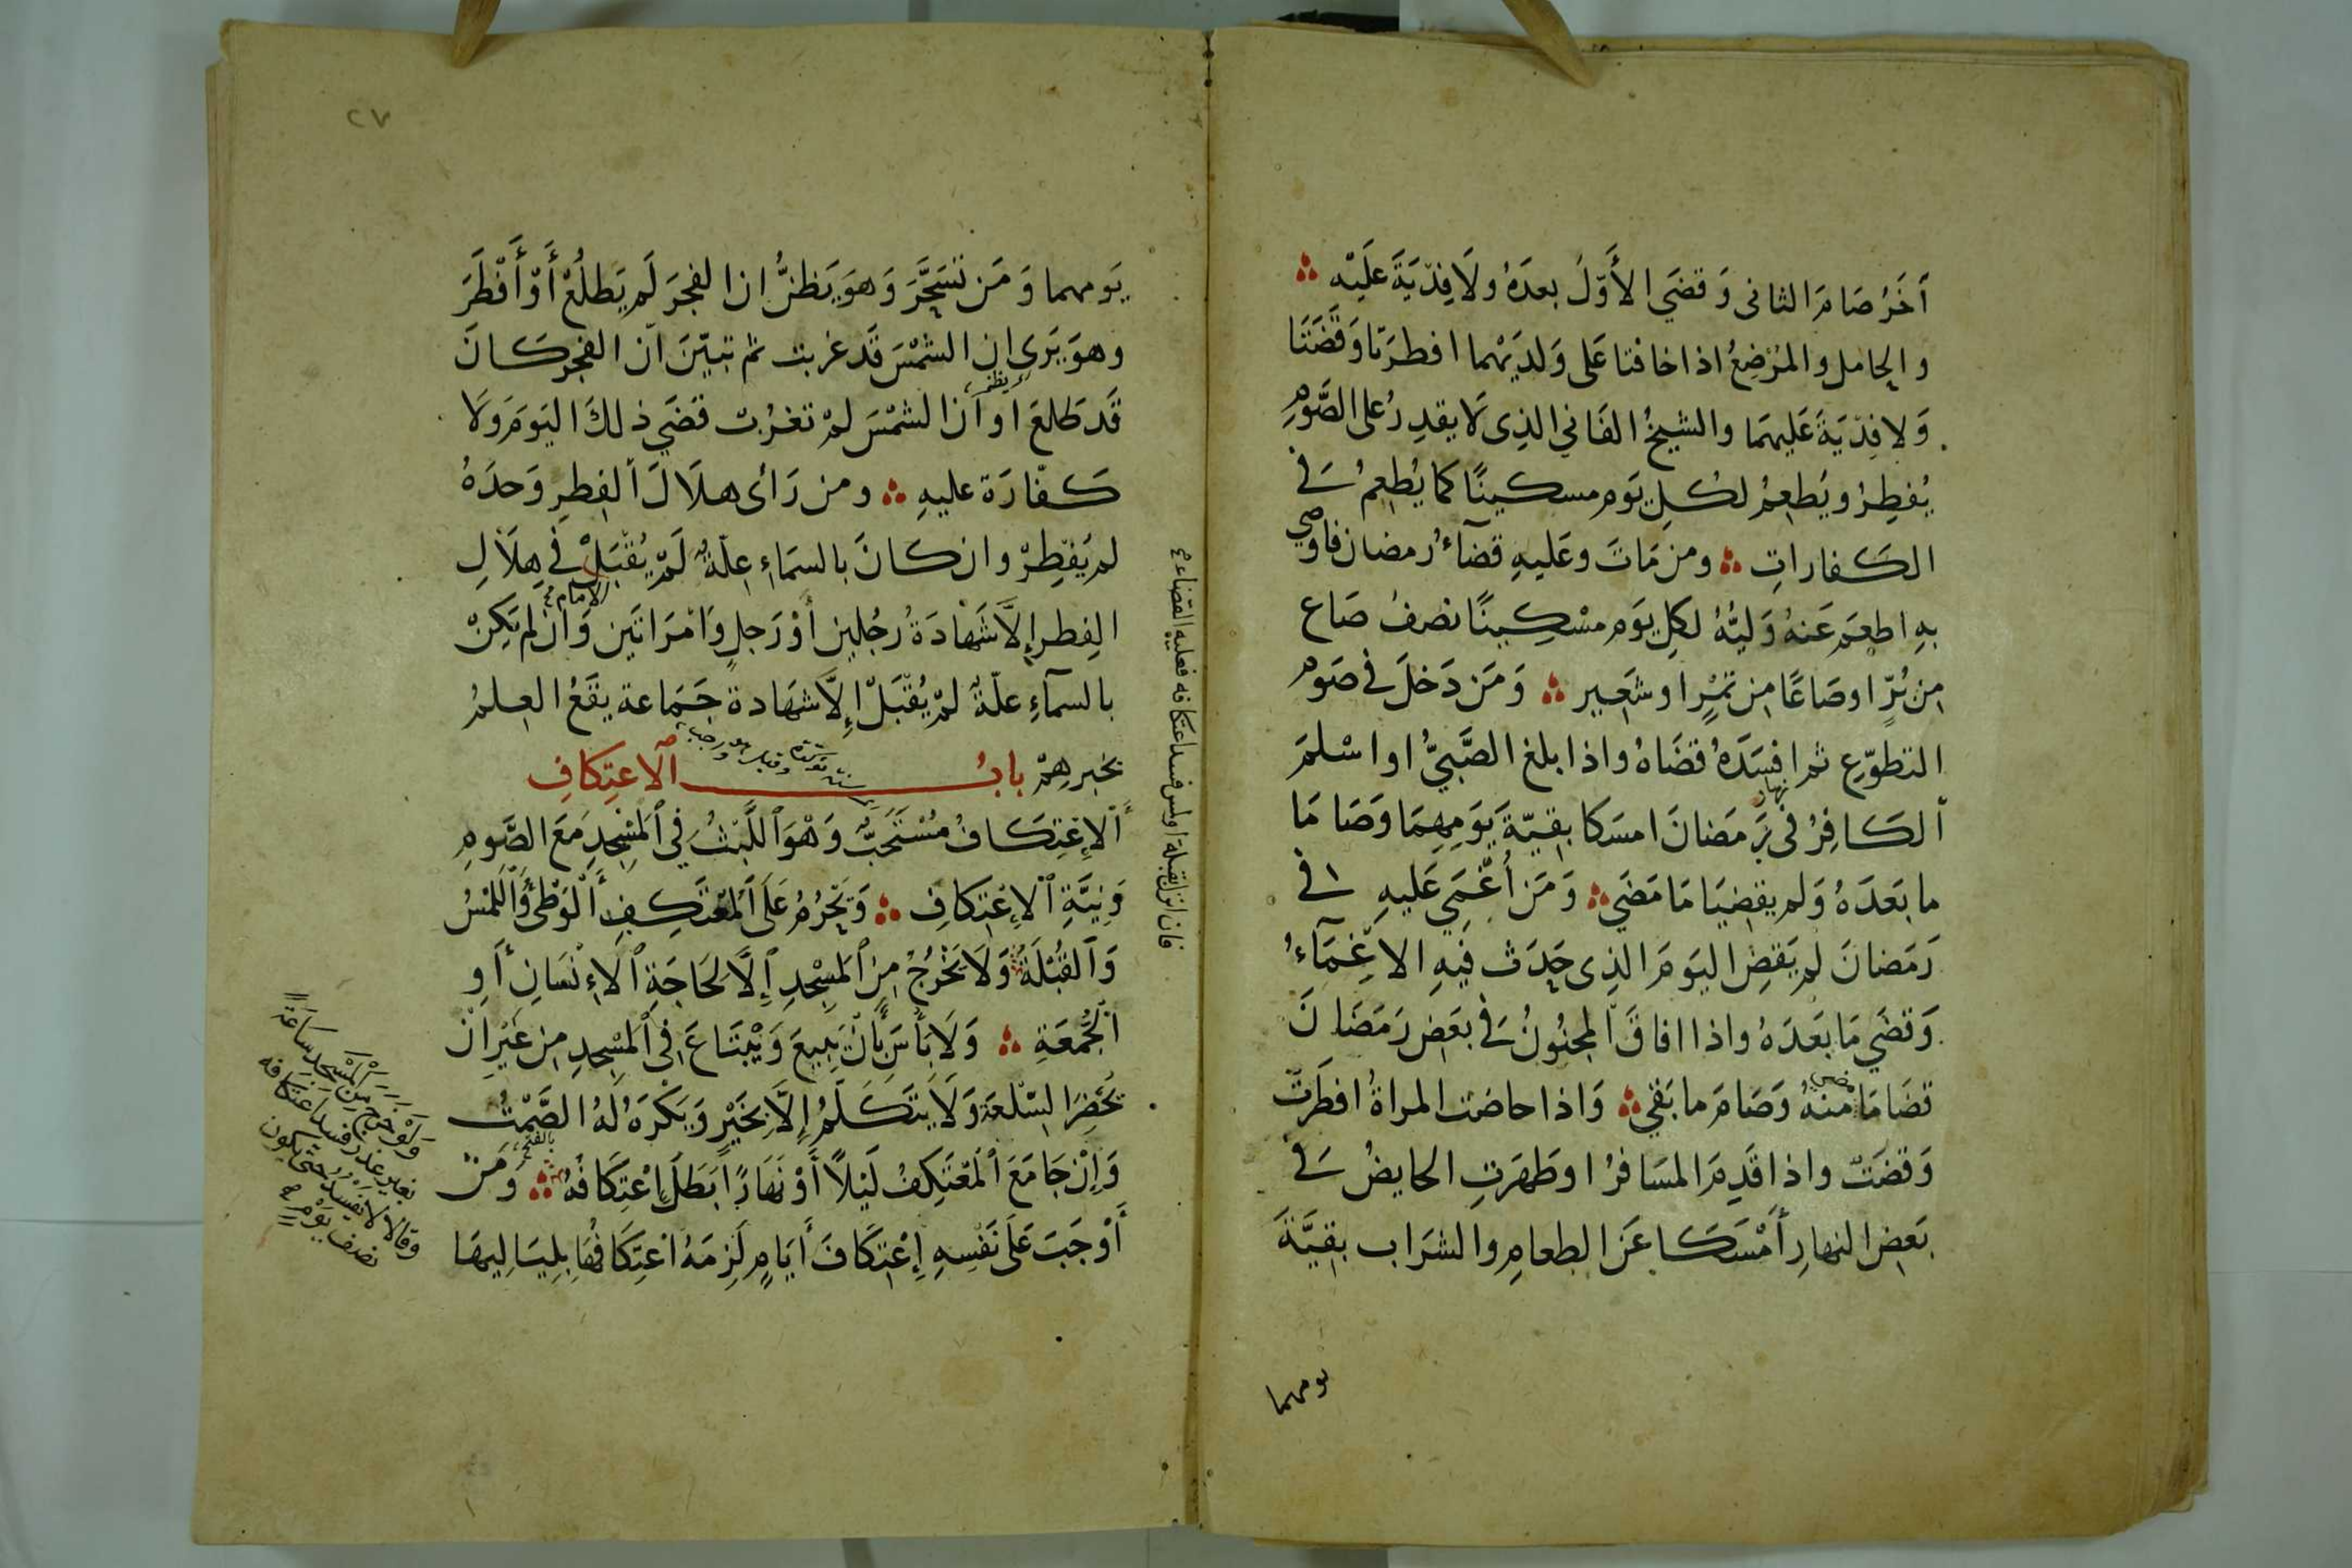 آخَرُ صَامَ الثانى وَقضَي الأَوَّلَ بعدَهُ ولَا فِدْيَةَ عَلَيْهِ
والحامل والمُرْضِعُ اذا خافتا عَلى وَلدَيْهما افطرَتا وَقَضَتَا
وَلا فِدْيَةَ عَليهمَا والشيخُ الفَاني الذِى لَا يقدِرُ على الصَّومِ
يُفطِرُ ويُطعِمُ لكُلِ يَوم مسكينًا كما يُطعِمُ فى
الكَفاراتِ ومن مَاتَ وعَليهِ قضآءُ رمضان فاوصي
بهِ اطعَمَ عَنهُ وَليُّهُ لكلِ يَوم مسْكِينًا نصفُ صَاع
من بُرٍّ اوصَاعًا من تمْرٍ اوشَعِير وَمَن دَخلَ فى صَومِ
التطوّعِ ثم افسَدَهُ قضَاهُ واذا بلغ الصَّبيُّ او اسْلمَ
ألكَافِرُ فى نهار رَمَضانَ امسَكا بقيّةَ يَومِهِمَا وَصَامَا
ما بَعدَهُ وَلم يقضِيَا مَا مَضَي وَمَن أُغْمَي عَليهِ فى
رَمَضانَ لم يَقضِ اليَومَ الذِى حَدَثَ فيهِ الاغْمآءُ
وَقضَي مَا بَعدَهُ واذا افاقَ المجنُونُ فى بعَض رَمَضَانَ
قضَا مَا مضى منهُ وَصَامَ ما بَقي وَاذا حاضت المراةُ افطَرَتْ
وَقضَتْ واذا قَدِمَ المسَافرُ او طَهرَتِ الحايضُ فى
بَعضِ النهارِ أمْسَكا عَن الطعامِ والشرَاب بقيَّةَ
يومهما
٢٧
يَومهما وَمَن تسَحَّرَ وَهوَ يَظنُّ ان الفجرَ لَم يَطلُعْ أَوْ أَفْطَرَ
وهوَ يَرَى ان الشمْسَ قَد غربت ثم تبيّنَ ان الفجرَ كَانَ
قَد طَلعَ او أن الشمْسَ لمْ تغرُبْ قضَي ذلكَ اليَومَ وَلَا
كَفّارَة عليهِ ومن رَأى هلَالَ الفِطرِ وَحدَهُ
لم يَفْطِرْ وان كانَ بالسمَاءِ عِلّةٌ لَمْ يُقْبَلْ الامام في هِلَالِ
الفِطر إِلَّا شَهَادَةُ رجُلين أَوْ رَجلٍ وَامْرَاتَين وَان لم تكنْ
بالسمآءِ علّةٌ لمْ يُقْبَلْ إِلَّا شهَادة جَمَاعة يقَعُ العِلمُ
بخبرهِمْ بابُ الاعتِكافِ
ألإِعْتِكَافُ مُسْتَحَبٌّ وَهْوَ اللَّبْثُ فِي المَسْجِدِ مَعَ الصَّومِ
وَنِيَّةِ الإِعْتِكافِ وَيَحْرُمُ عَلَى المُعْتَكِفِ الوَطْئُ وَاللَّمْسُ
وَالقُبْلَةُ وَلَا يَخْرُجُ مِنَ المَسْجِدِ إِلَّا لحَاجَةِ الإِنْسَانِ أَوِ
الجُمعَةِ وَلَا بَأْسَ بأَنْ يَبِيعَ وَيْبْتَاعَ فى المَسْجِدِ من غَيْرِ انْ
يُحْضِرَ السّلعَة وَلَا يَتَكَلَّمُ إِلَّا بخَيْرٍ وَيَكْرَهُ لهُ الصَّمْتُ
وَإِنْ جَامَعَ المُعْتَكِفُ لَيْلًا أَوْ نَهَارًا بَطَلَ اعْتِكَافُهُ وَمَنْ
أَوْجَبَ عَلَى نَفْسِهِ إِعْتِكَافَ أَيَامٍ لَزِمَهُ اعْتِكَافُهَا بِليَالِيهَا
وَلَوْ خَرَجَ مِنَ المَسْجِدِ سَاعَةً
بغير عذر فسد اعتكافه
وقالا لا يفسد حتى يكون
نصف يوم